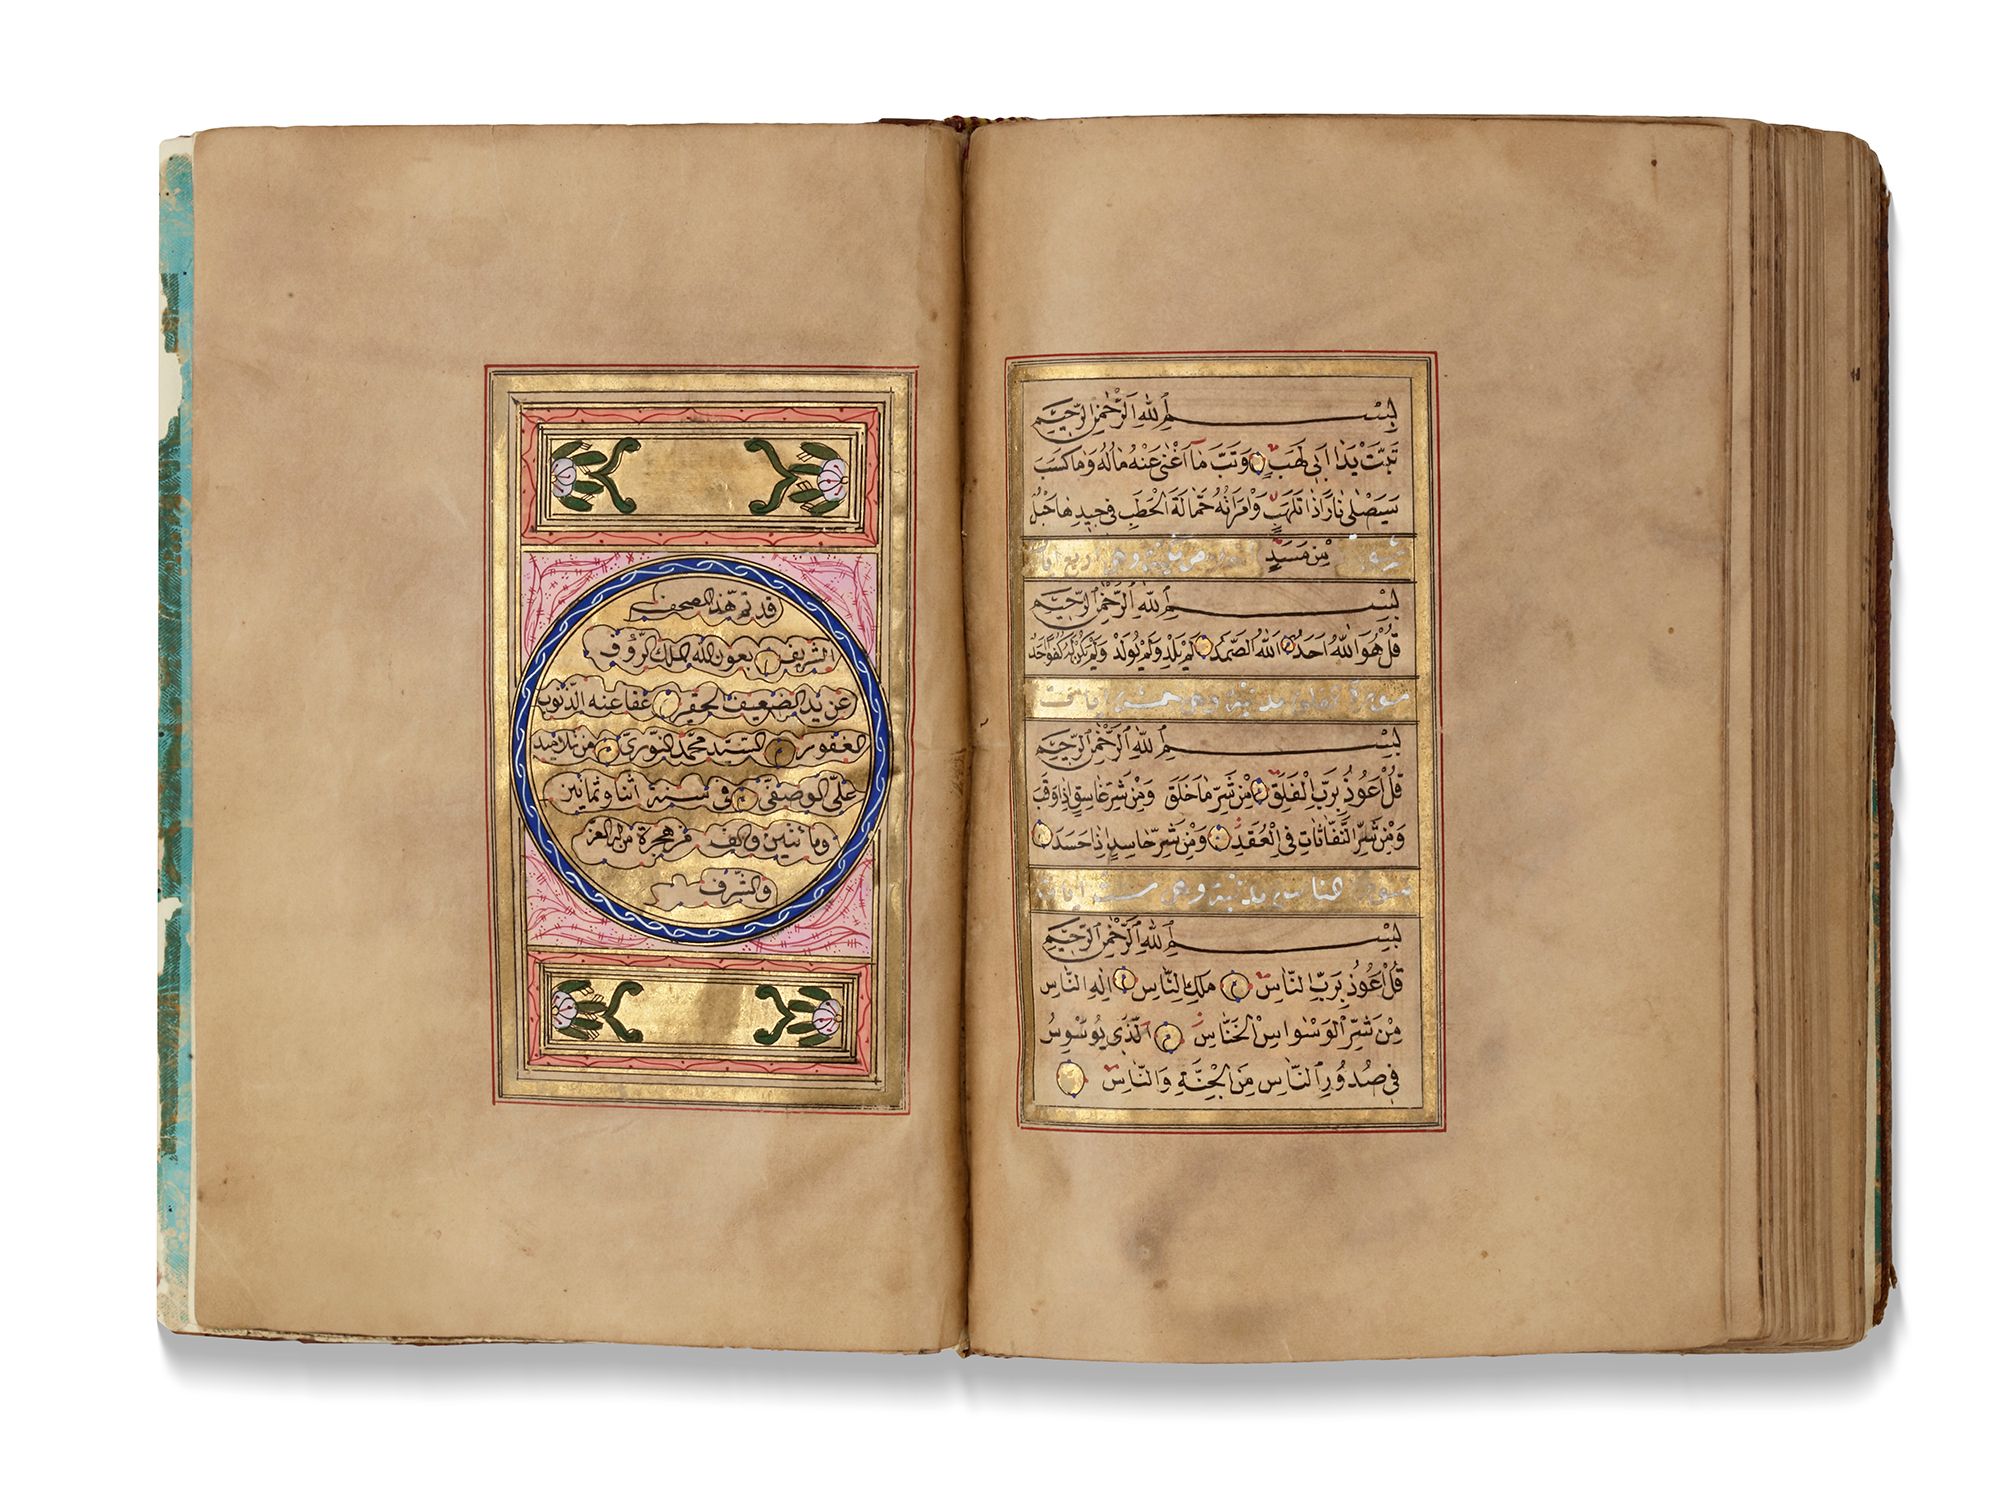 بِسْمِ اللّٰهِ الرَّحْمٰنِ الرَّحِيمِ
تَبَّتْ يَدَا اَبِى لَهَبٍ وَتَبَّ مَا اَغْنٰى عَنْهُ مَالُهُ وَمَا كَسَبَ
سَيَصْلٰى نَارًا ذَاتَ لَهَبٍ وَامْرَاَتُهُ حَمَّالَةَ الْحَطَبِ فِى جِيدِهَا حَبْلٌ
مِنْ مَسَدٍ وهى اربع ايات
بِسْمِ اللّٰهِ الرَّحْمٰنِ الرَّحِيمِ
قُلْ هُوَ اللّٰهُ اَحَدٌ اَللّٰهُ الصَّمَدُ لَمْ يَلِدْ وَلَمْ يُولَدْ وَلَمْ يَكُنْ لَهُ كُفُوًا اَحَدٌ
سورة الفلق مدنية وهى خمس ايات
بِسْمِ اللّٰهِ الرَّحْمٰنِ الرَّحِيمِ
قُلْ اَعُوذُ بِرَبِّ الْفَلَقِ مِنْ شَرِّ مَا خَلَقَ وَمِنْ شَرِّ غَاسِقٍ اِذَا وَقَبَ
وَمِنْ شَرِّ النَّفَّاثَاتِ فِى الْعُقَدِ وَمِنْ شَرِّ حَاسِدٍ اِذَا حَسَدَ
سورة الناس مدنية وهى ست ايات
بِسْمِ اللّٰهِ الرَّحْمٰنِ الرَّحِيمِ
قُلْ اَعُوذُ بِرَبِّ النَّاسِ مَلِكِ النَّاسِ اِلٰهِ النَّاسِ
مِنْ شَرِّ الْوَسْوَاسِ الْخَنَّاسِ اَلَّذِى يُوَسْوِسُ
فِى صُدُورِ النَّاسِ مِنَ الْجِنَّةِ وَالنَّاسِ
قد تم هذا المصحف
الشريف بعون الله الملك الرؤف
عن يد الضعيف الحقير عفا عنه الذنوب
الغفور السيد محمد النورى من تلاميذ
على الوصفى فى سنة اثنا وثمانين
ومائتين والف من هجرة من له العز
والشرف